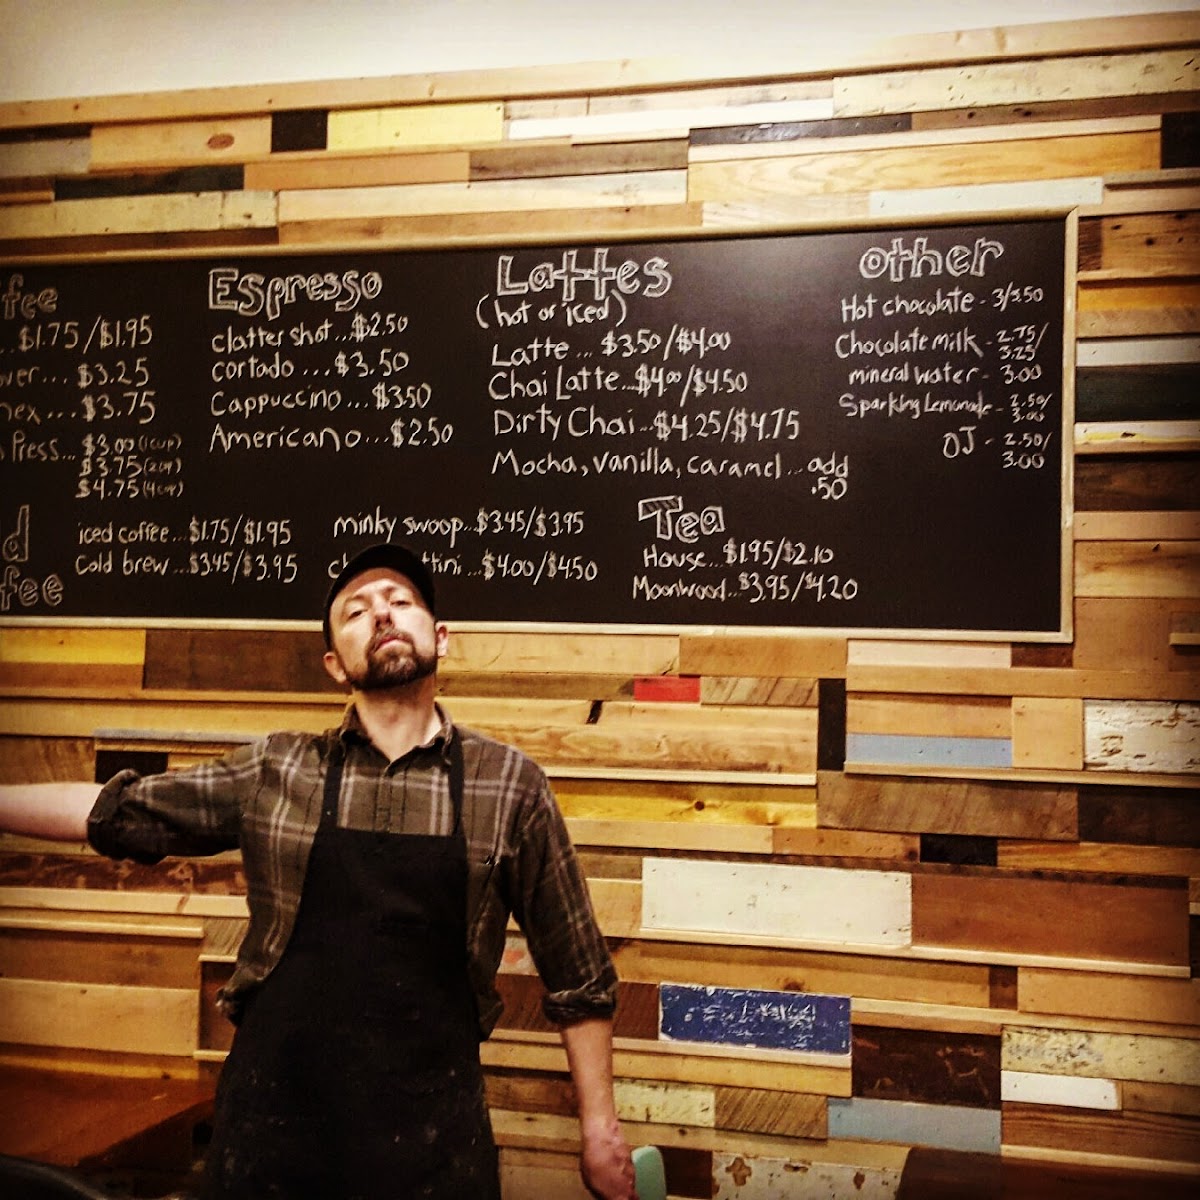 fee
..$1.75/$1.95
ver...$3.25
ex...$3.75
Press...$3.00(1cup)
$3.75(2cup)
$4.75(4cup)
Espresso
clatter shot...$2.50
cortado...$3.50
Cappuccino...$3.50
Americano...$2.50
Lattes
(hot or iced)
Latte...$3.50/$4.00
Chai Latte...$4.00/$4.50
Dirty Chai...$4.25/$4.75
Mocha, vanilla, caramel...add
.50
other
Hot chocolate - 3/3.50
Chocolate milk - 2.75/
3.25
mineral water - 3.00
Sparkling Lemonade - 2.50/
3.00
OJ - 2.50/
3.00
d
fee
iced coffee...$1.75/$1.95
Cold brew...$3.45/$3.95
minky swoop...$3.45/$3.95
ch ttini...$4.00/$4.50
Tea
House...$1.95/$2.10
Moonwood...$3.95/$4.20